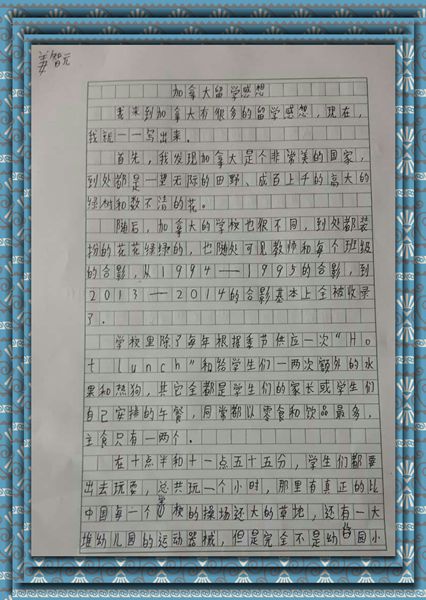 姜智元
加拿大留学感想
我来到加拿大有很多的留学感想，现在，
我就一一写出来。
首先，我发现加拿大是个非常美的国家，
到处都是一望无际的田野、成百上千的高大的
绿树和数不清的花。
随后，加拿大的学校也很不同，到处都装
扮的花花绿绿的，也随处可见教师和每个班级
的合影，从1994——1995的合影，到
2013——2014的合影基本上全被收录
了。
学校里除了每年根据季节供应一次“Ho
t lunch”和给学生们一两次额外的水
果和热狗，其它全都是学生们的家长或学生们
自己安排的午餐，同常都以零食和饮品最多，
主食只有一两个。
在十点半和十一点五十五分，学生们都要
出去玩耍，总共玩一个小时，那里有真正的比
中国每一个学校的操场还大的草地，还有一大
堆幼儿园的运动器械，但是完全不是幼 园小